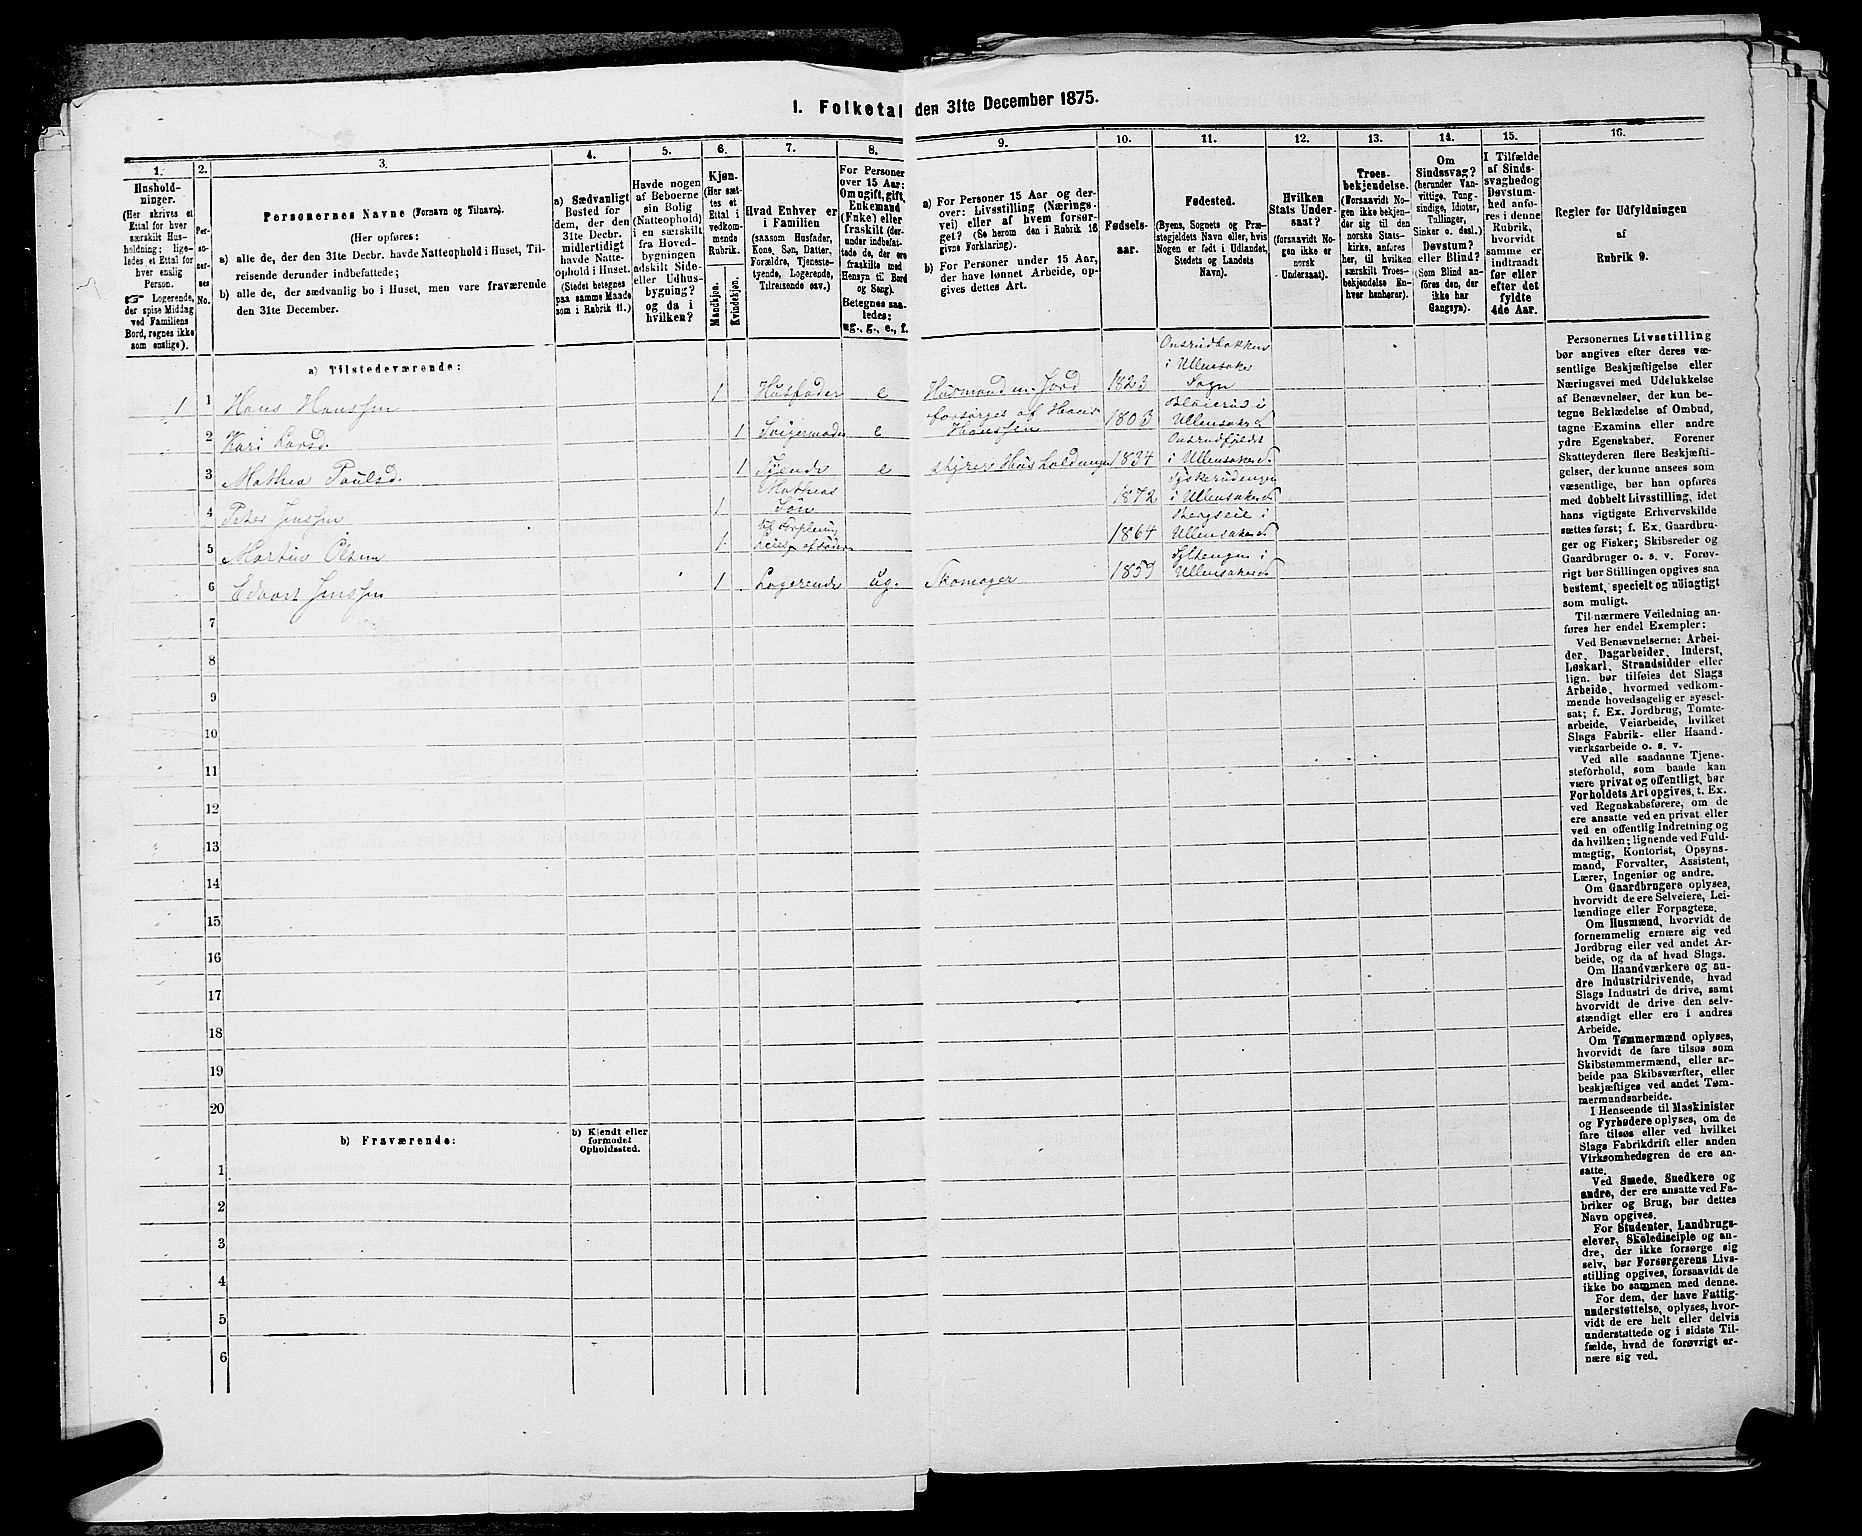 1. Folketal den 31te December 1875.
1. 2. 3. 4. 5. 6. 7. 8. 9. 10. 11. 12. 13. 14. 15. 16.
Hushold-
ninger.
(Her skrives et
Ettal for hver
særskilt Hus-
holdning; lige-
ledes et Ettal for
hver enslig
Person.
☞ Logerende,
der spise Middag
ved Familiens
Bord, regnes ikke
som enslige).
Per-
so-
ner-
nes
No.
Personernes Navne (Fornavn og Tilnavn).
(Her opføres:
a) alle de, der den 31te Decbr. havde Natteophold i Huset, Til-
reisende derunder indbefattede;
b) alle de, der sædvanlig bo i Huset, men vare fraværende
den 31te December.
a) Sædvanligt
Bosted for
dem, der den
31te Decbr.
midlertidigt
havde Natte-
ophold i Huset.
(Stedet betegnes
paa samme Maade
som i Rubrik 11.)
Havde nogen
af Beboerne
sin Bolig
(Natteophold)
i en særskilt
fra Hoved-
bygningen
adskilt Side-
eller Udhus-
bygning?
og da i
hvilken?
Kjøn.
(Her sæt-
tes et
Ettal i
vedkom-
mende
Rubrik.
Mandkjøn.
Kvindekjøn.
Hvad Enhver er
i Familien
(saasom Husfader,
Kone, Søn, Datter,
Forældre, Tjeneste-
tyende, Logerende,
Tilreisende osv.)
For Personer
over 15 Aar:
Om ugift, gift,
Enkemand
(Enke) eller
fraskilt (der-
under indbefat-
tede de, der ere
fraskilte med
Hensyn til Bord
og Seng).
Betegnes saa-
ledes:
ug., g., e., f.
a) For Personer 15 Aar og der-
over: Livsstilling (Nærings-
vei) eller af hvem forsør-
get? (Se herom den i Rubrik 16
givne Forklaring).
b) For Personer under 15 Aar,
der have lønnet Arbeide, op-
gives dettes Art.
Fødsels-
aar.
Fødested.
(Byens, Sognets og Præ-
stegjeldets Navn eller, hvis
Nogen er født i Udlandet,
Stedets og Landets
Navn).
Hvilken
Stats Under-
saat?
(forsaavidt No-
gen ikke er
norsk
Undersaat).
Troes-
bekjendelse.
(Forsaavidt No-
gen ikke bekjen-
der sig til den
norske Stats-
kirke, anføres
her, til hvilken
særskilt Troes-
bekjendelse En-
hver henhører).
Om
Sindssvag?
(herunder Van-
vittige, Tung-
sindige, Idioter,
Tullinger,
Sinker o. desl.)
Døvstum?
eller Blind?
(Som Blind an-
føres den, der
ikke har
Gangsyn).
I Tilfælde
af Sinds-
svaghed og
Døvstum-
hed anfø-
res i denne
Rubrik,
hvorvidt
samme er
indtraadt
før eller
efter det
fyldte
4de Aar.
Regler for Udfyldningen
af
Rubrik 9.
a) Tilstedeværende:
1 1 Hans Hanssen 1 Husfader e Husmand m. Jord 1823 Onsrudbakken i Ullensaker Sogn
2 Kari Larsd. 1 Svigermoder e forsørges af Hans Hanssen 1803 Ullensaker
3 Mathea Paulsd. 1 Tjende e styrer Husholdningen 1834 Onsrudfjeldet i Ullensaker
4 Peter Jenssen 1 Matheas Søn 1872 i Ullensaker
5 Martin Olsen 1 1864 Ullensaker
6 Edvart Jenssen 1 Logerende ug. Skomager 1859 Ullensaker
7
8
9
10
11
12
13
14
15
16
17
18
19
20
b) Fraværende:
b) Kjendt eller
formodet
Opholdssted.
1
2
3
4
5
6
Personernes Livsstilling
bør angives efter deres væ-
sentlige Beskjæftigelse eller
Næringsvei med Udelukkelse
af Benævnelser, der kun be-
tegne Beklædelse af Ombud,
tagne Examina eller andre
ydre Egenskaber. Forener
Skatteyderen flere Beskjæfti-
gelser, der kunne ansees som
væsentlige, bør han opføres
med dobbelt Livsstilling, idet
hans vigtigste Erhvervskilde
sættes først; f. Ex. Gaardbru-
ger og Fisker; Skibsreder og
Gaardbruger o. s. v. Forøv-
rigt bør Stillingen opgives saa
bestemt, specielt og nøiagtigt
som muligt.
Til nærmere Veiledning an-
føres her endel Exempler:
Ved Benævnelserne: Arbei-
der, Dagarbeider, Inderst,
Løskarl, Strandsidder eller
lign. bør tilføies det Slags
Arbeide, hvormed vedkom-
mende hovedsagelig er syssel-
sat; f. Ex. Jordbrug, Tomte-
arbeide, Veiarbeide, hvilket
Slags Fabrik- eller Haand-
værksarbeide o. s. v.
Ved alle saadanne Tjene-
steforhold, som baade kan
være privat og offentligt, bør
Forholdets Art opgives, t. Ex.
ved Regnskabsførere, om de
ere ansatte ved en privat eller
ved en offentlig Indretning og
da hvilken; lignende ved Fuld-
mægtig, Kontorist, Opsyns-
mand, Forvalter, Assistent,
Lærer, Ingeniør og andre.
Om Gaardbrugere oplyses,
hvorvidt de ere Selveiere, Lei-
lændinge eller Forpagtere.
Om Husmænd, hvorvidt de
fornemmelig ernære sig ved
Jordbrug eller ved andet Ar-
beide, og da af hvad Slags.
Om Haandværkere og an-
dre Industridrivende, hvad
Slags Industri de drive, samt
hvorvidt de drive den selv-
stændigt eller ere i andres
Arbeide.
Om Tømmermænd oplyses,
hvorvidt de fare tilsøs som
Skibstømmermænd, eller ar-
beide paa Skibsværfter, eller
beskjæftiges ved andet Tøm-
mermandsarbeide.
I Henseende til Maskinister
og Fyrbødere oplyses, om de
fare tilsøs eller ved hvilket
Slags Fabrikdrift eller anden
Virksomhedsgren de ere an-
satte.
Ved Smede, Snedkere og
andre, der ere ansatte ved Fa-
briker og Brug, bør dettes
Navn opgives.
For Studenter, Landbrugs-
elever, Skoledisciple og an-
dre, der ikke forsørge sig
selv, bør Forsørgerens Livs-
stilling opgives, forsaavidt de
ikke bo sammen med denne.
For dem, der have Fattig-
understøttelse, oplyses, hvor-
vidt de ere helt eller delvis
understøttede og i sidste Til-
fælde, hvad de forøvrigt er-
nære sig ved.